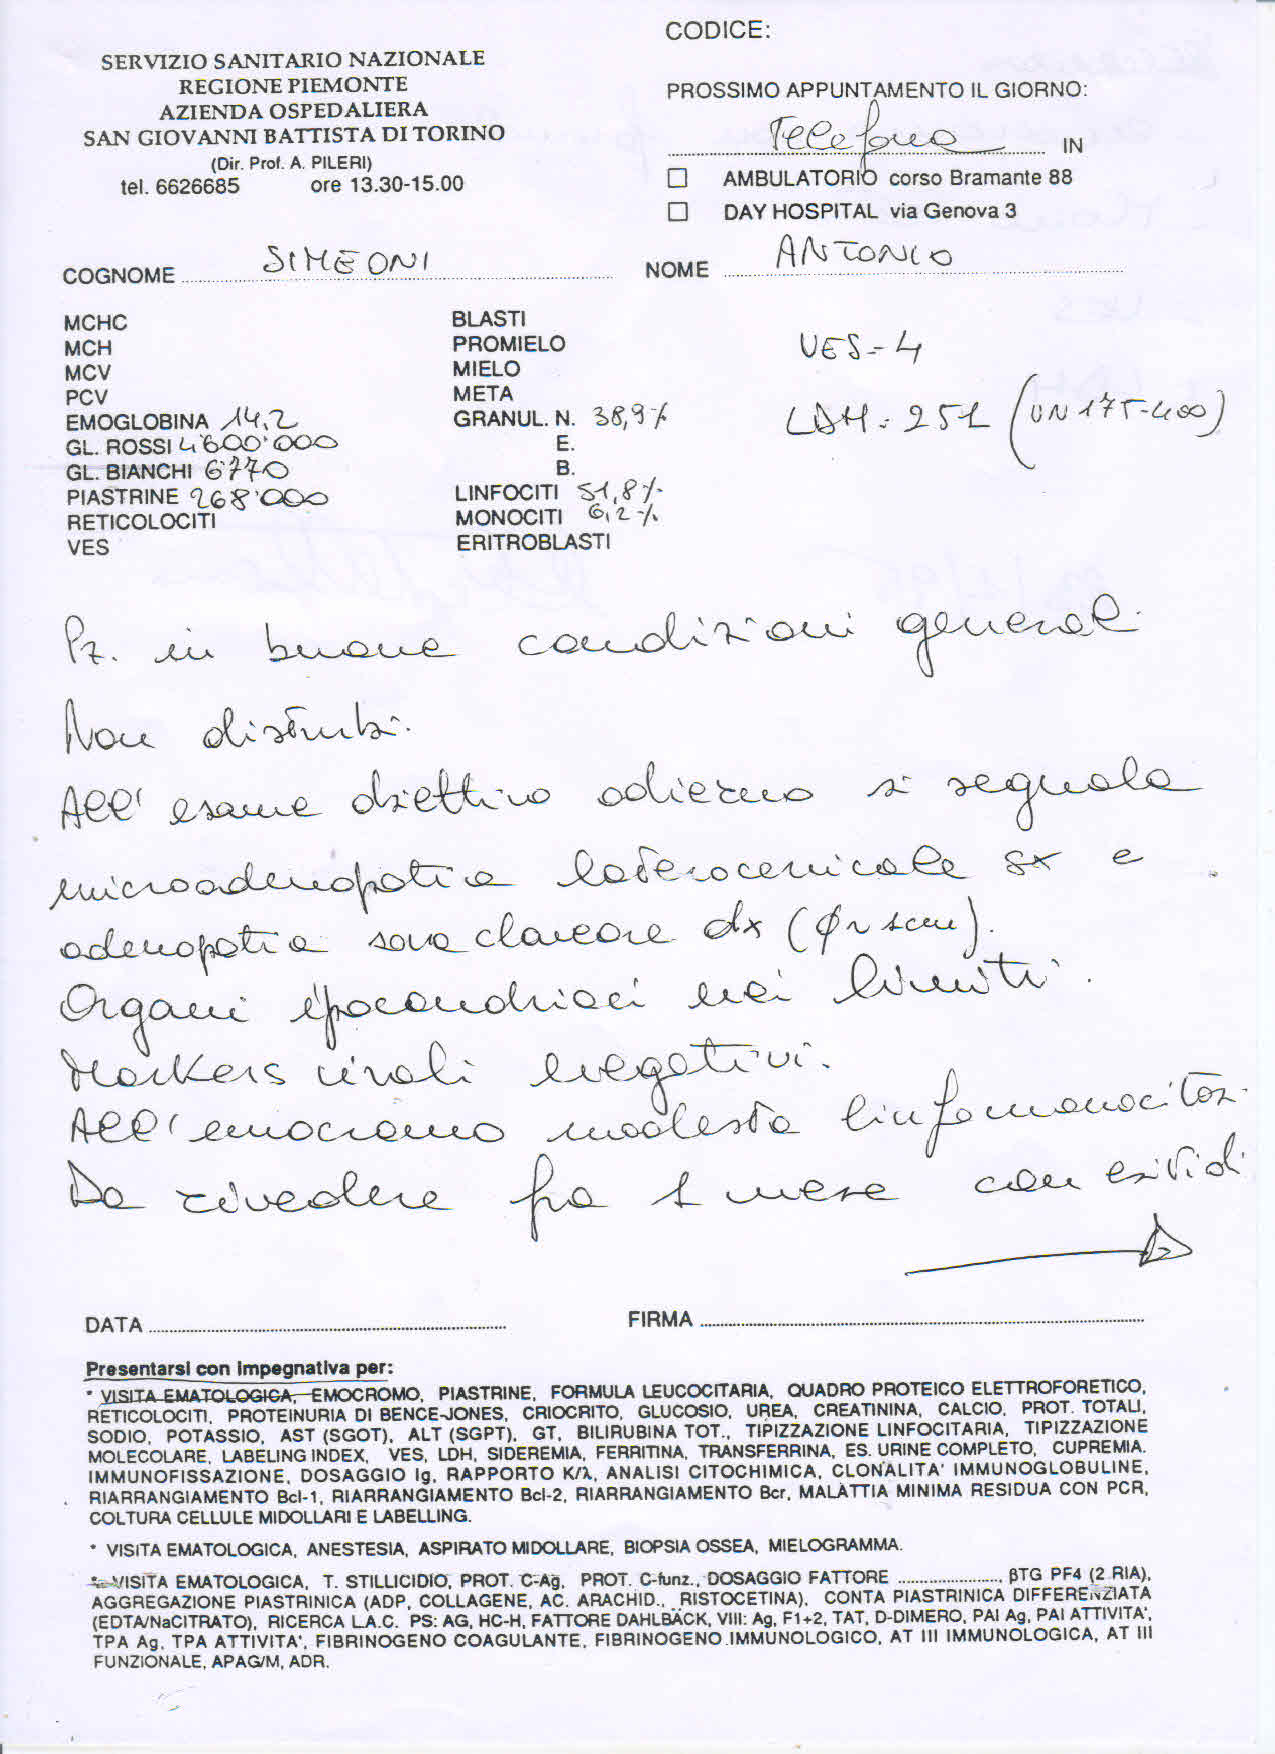 CODICE:
SERVIZIO SANITARIO NAZIONALE
REGIONE PIEMONTE
AZIENDA OSPEDALIERA
SAN GIOVANNI BATTISTA DI TORINO
(Dir. Prof. A. PILERI)
tel. 6626685 ore 13.30-15.00
PROSSIMO APPUNTAMENTO IL GIORNO:
Telefono IN
AMBULATORIO corso Bramante 88
DAY HOSPITAL via Genova 3
COGNOME SIMEONI NOME ANTONIO
MCHC
MCH
MCV
PCV
EMOGLOBINA 14,2
GL. ROSSI 4'600'000
GL. BIANCHI 6770
PIASTRINE 268'000
RETICOLOCITI
VES
BLASTI
PROMIELO
MIELO
META
GRANUL. N. 38,9%
E.
B.
LINFOCITI 51,8%
MONOCITI 6,2%
ERITROBLASTI
VES = 4
LDH = 251 (UN 175-400)
Pz. in buone condizioni generali
Non disturbi.
All'esame obiettivo odierno si segnala
microadenopatia laterocervicale sx e
adenopatia sovraclaveare dx (Ø ~ 1cm).
Organi ipocondriaci nei limiti.
Markers virali negativi.
All'emocromo modesta linfomonocitos.
Da rivedere fra 1 mese con esiti di
DATA FIRMA
Presentarsi con impegnativa per:
* VISITA EMATOLOGICA, EMOCROMO, PIASTRINE, FORMULA LEUCOCITARIA, QUADRO PROTEICO ELETTROFORETICO,
RETICOLOCITI, PROTEINURIA DI BENCE-JONES, CRIOCRITO, GLUCOSIO, UREA, CREATININA, CALCIO, PROT. TOTALI,
SODIO, POTASSIO, AST (SGOT), ALT (SGPT), GT, BILIRUBINA TOT., TIPIZZAZIONE LINFOCITARIA, TIPIZZAZIONE
MOLECOLARE, LABELING INDEX, VES, LDH, SIDEREMIA, FERRITINA, TRANSFERRINA, ES. URINE COMPLETO, CUPREMIA.
IMMUNOFISSAZIONE, DOSAGGIO Ig, RAPPORTO K/λ, ANALISI CITOCHIMICA, CLONALITA' IMMUNOGLOBULINE,
RIARRANGIAMENTO Bcl-1, RIARRANGIAMENTO Bcl-2, RIARRANGIAMENTO Bcr, MALATTIA MINIMA RESIDUA CON PCR,
COLTURA CELLULE MIDOLLARI E LABELLING.
* VISITA EMATOLOGICA, ANESTESIA, ASPIRATO MIDOLLARE, BIOPSIA OSSEA, MIELOGRAMMA.
* VISITA EMATOLOGICA, T. STILLICIDIO, PROT. C-Ag, PROT. C-funz., DOSAGGIO FATTORE ..................... βTG PF4 (2 RIA),
AGGREGAZIONE PIASTRINICA (ADP, COLLAGENE, AC. ARACHID., RISTOCETINA). CONTA PIASTRINICA DIFFERENZIATA
(EDTA/NaCITRATO), RICERCA L.A.C. PS: AG, HC-H, FATTORE DAHLBÄCK, VIII: Ag, F1+2, TAT, D-DIMERO, PAI Ag, PAI ATTIVITA',
TPA Ag, TPA ATTIVITA', FIBRINOGENO COAGULANTE, FIBRINOGENO IMMUNOLOGICO, AT III IMMUNOLOGICA, AT III
FUNZIONALE, APAG/M, ADR.